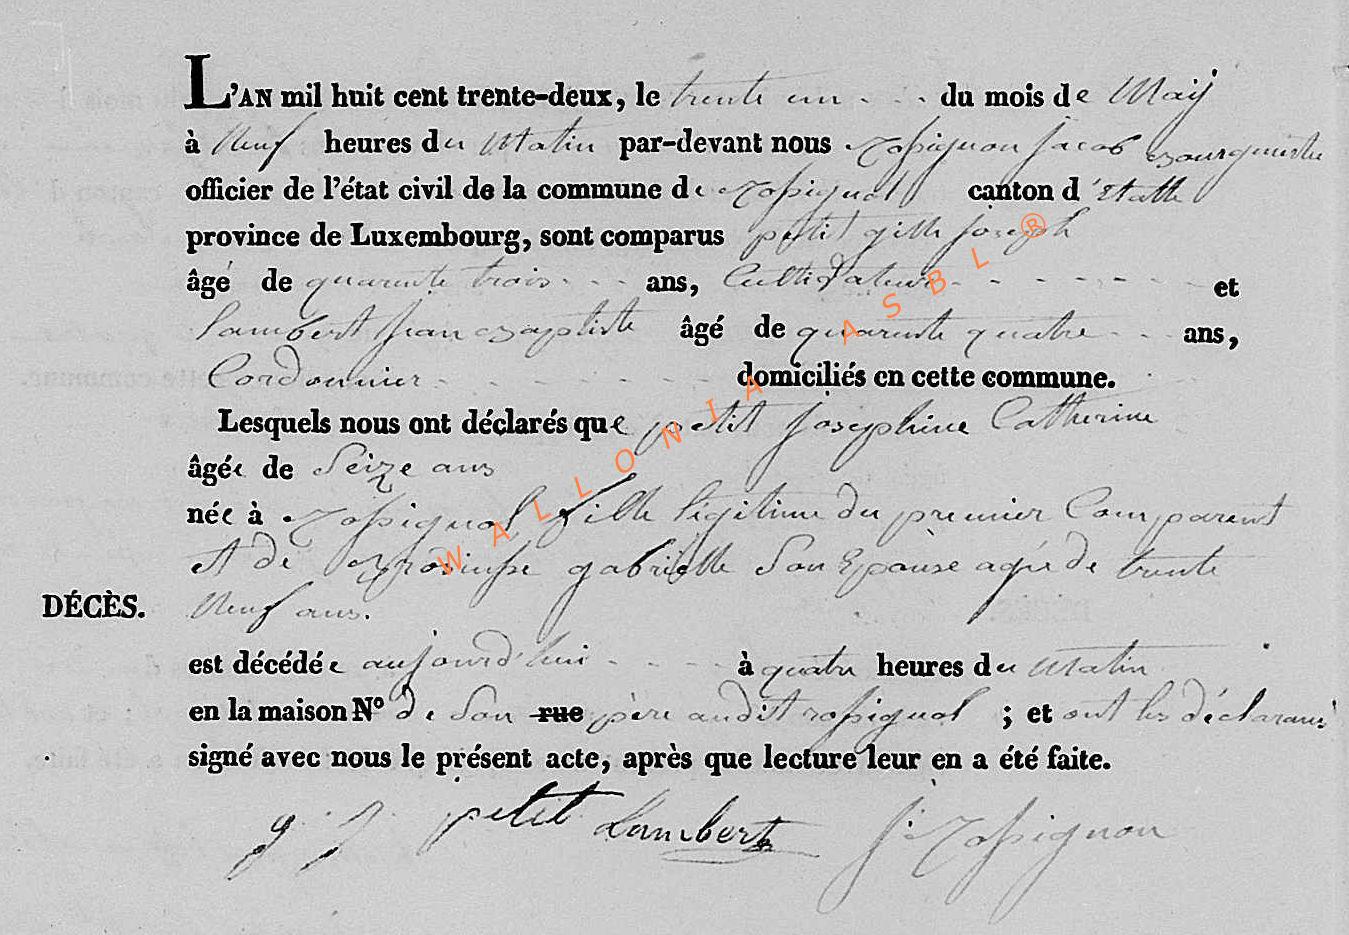 L'AN mil huit cent trente-deux, le trente un du mois de May
à Neuf heures du Matin par-devant nous Rossignon Jacob Bourgmestre
officier de l'état civil de la commune de Rossignol canton d'Etalle
province de Luxembourg, sont comparus petit gille Joseph
âgé de quarente trois ans, Cultivateur et
Lambert Jean Baptiste âgé de quarente quatre ans,
Cordonnier domiciliés en cette commune.
Lesquels nous ont déclarés que petit Josephine Catherine
âgée de Seize ans
née à Rossignol fille légitime du premier Comparent
et de gabrielle Son Epouse agée de trente
DÉCÈS. Neuf ans.
est décédée aujourd'hui à quatre heures du Matin
en la maison N° de Son rue père audit rossignol ; et ont les déclarans
signé avec nous le présent acte, après que lecture leur en a été faite.
g. J. petit Lambert J. Rossignon
WALLONIA ASBL ®